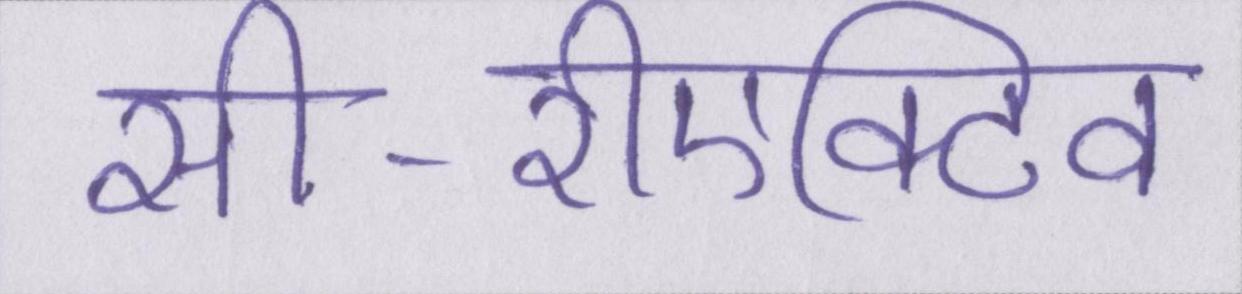 सी-रीएक्टिव